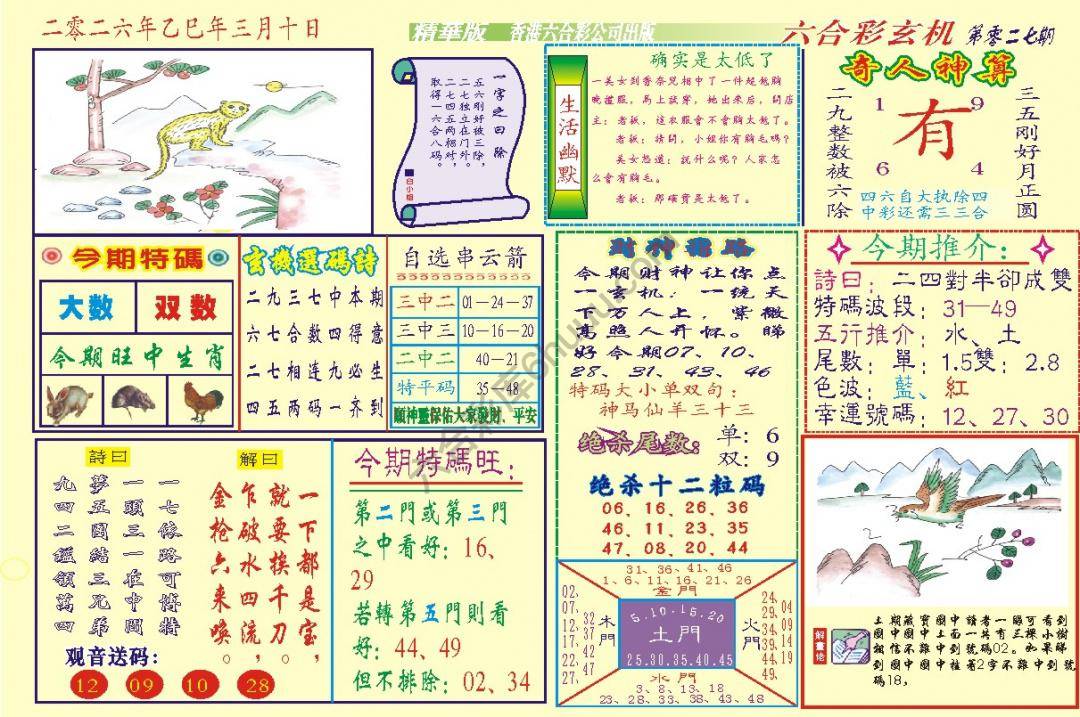 二零二六年乙巳年三月十日
精華版 香港六合彩公司出版
六合彩玄机 第零二七期
一字之曰除
五六刚好被三除，
二七独立好在外。
二七四五两相对，
取得一六合八码。
白小姐
生活幽默
确实是太低了
一美女到香奈儿相中了一件超低胸
晚禮服，馬上試穿，她出來后，問店
主：老板，這衣服會不會胸太低了。
老板：請問，小姐你有胸毛嗎？
美女怒道：説什么呢？人家怎
么會有胸毛。
老板：那確實是太低了。
奇人神算
二九整数被六除
1 9
有
6 4
三五刚好月正圆
四六自大执除四
中彩还需三三合
今期特碼
大数 双数
今期旺中生肖
玄機選碼詩
二九三七中本期
六七合数四得意
二七相连九必生
四五两码一齐到
自选串云箭
三中二 01—24—37
三中三 10—16—20
二中二 40—21
特平码 35—48
願神靈保佑大家發財、平安
財神指路
今期财神让你点
一玄机：一统天
下万人上，紫微
高照人开怀。睇
好今期07、10、
28、31、43、46
特码大小单双句：
神马仙羊三十三
绝杀尾数：
单：6
双：9
绝杀十二粒码
06、16、26、36
46、11、23、35
47、08、20、44
今期推介：
詩曰：二四對半卻成雙
特碼波段：31—49
五行推介：水、土
尾數：單：1.5雙：2.8
色波：藍、紅
幸運號碼：12、27、30
詩曰
一七條路可博特
一頭三一在中間
夢五圍結三兄弟
九四二鑑領萬四
解曰
一下都是宝，
就要挨千刀。
乍破水四流，
金枪六来唤。
观音送码：
12 09 10 28
今期特碼旺：
第二門或第三門
之中看好：16、
29
若轉第五門則看
好：44、49
但不排除：02、34
31、36、41、46
1、6、11、16、21、26
金門
02、07、12、17、22、27、
32、37、42、47
木門
5.10.15.20
土門
25.30.35.40.45
火門
24、29、34、39、44、49
04、09、14、19
水門
3、8、13、18
23、28、33、38、43、48
解畫佬
土期藏寶圖中讀者一睇可看到
圖中圖中上面一共有三棵小樹
相信不難中到號碼02。如果睇
到圖中圖中藏著2字不難中到號
碼18，